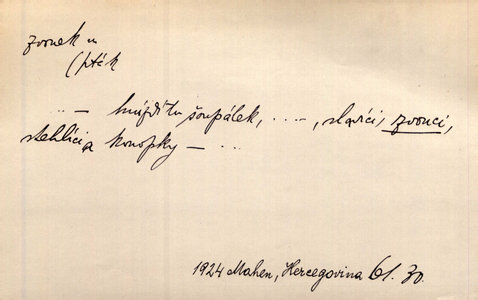 zvonek m
(pták
.. — hnízdí tu šoupálek, ...., slavíci, zvonci,
stehlíci a konopky — ..
1924 Mahen, Hercegovina 61.30.